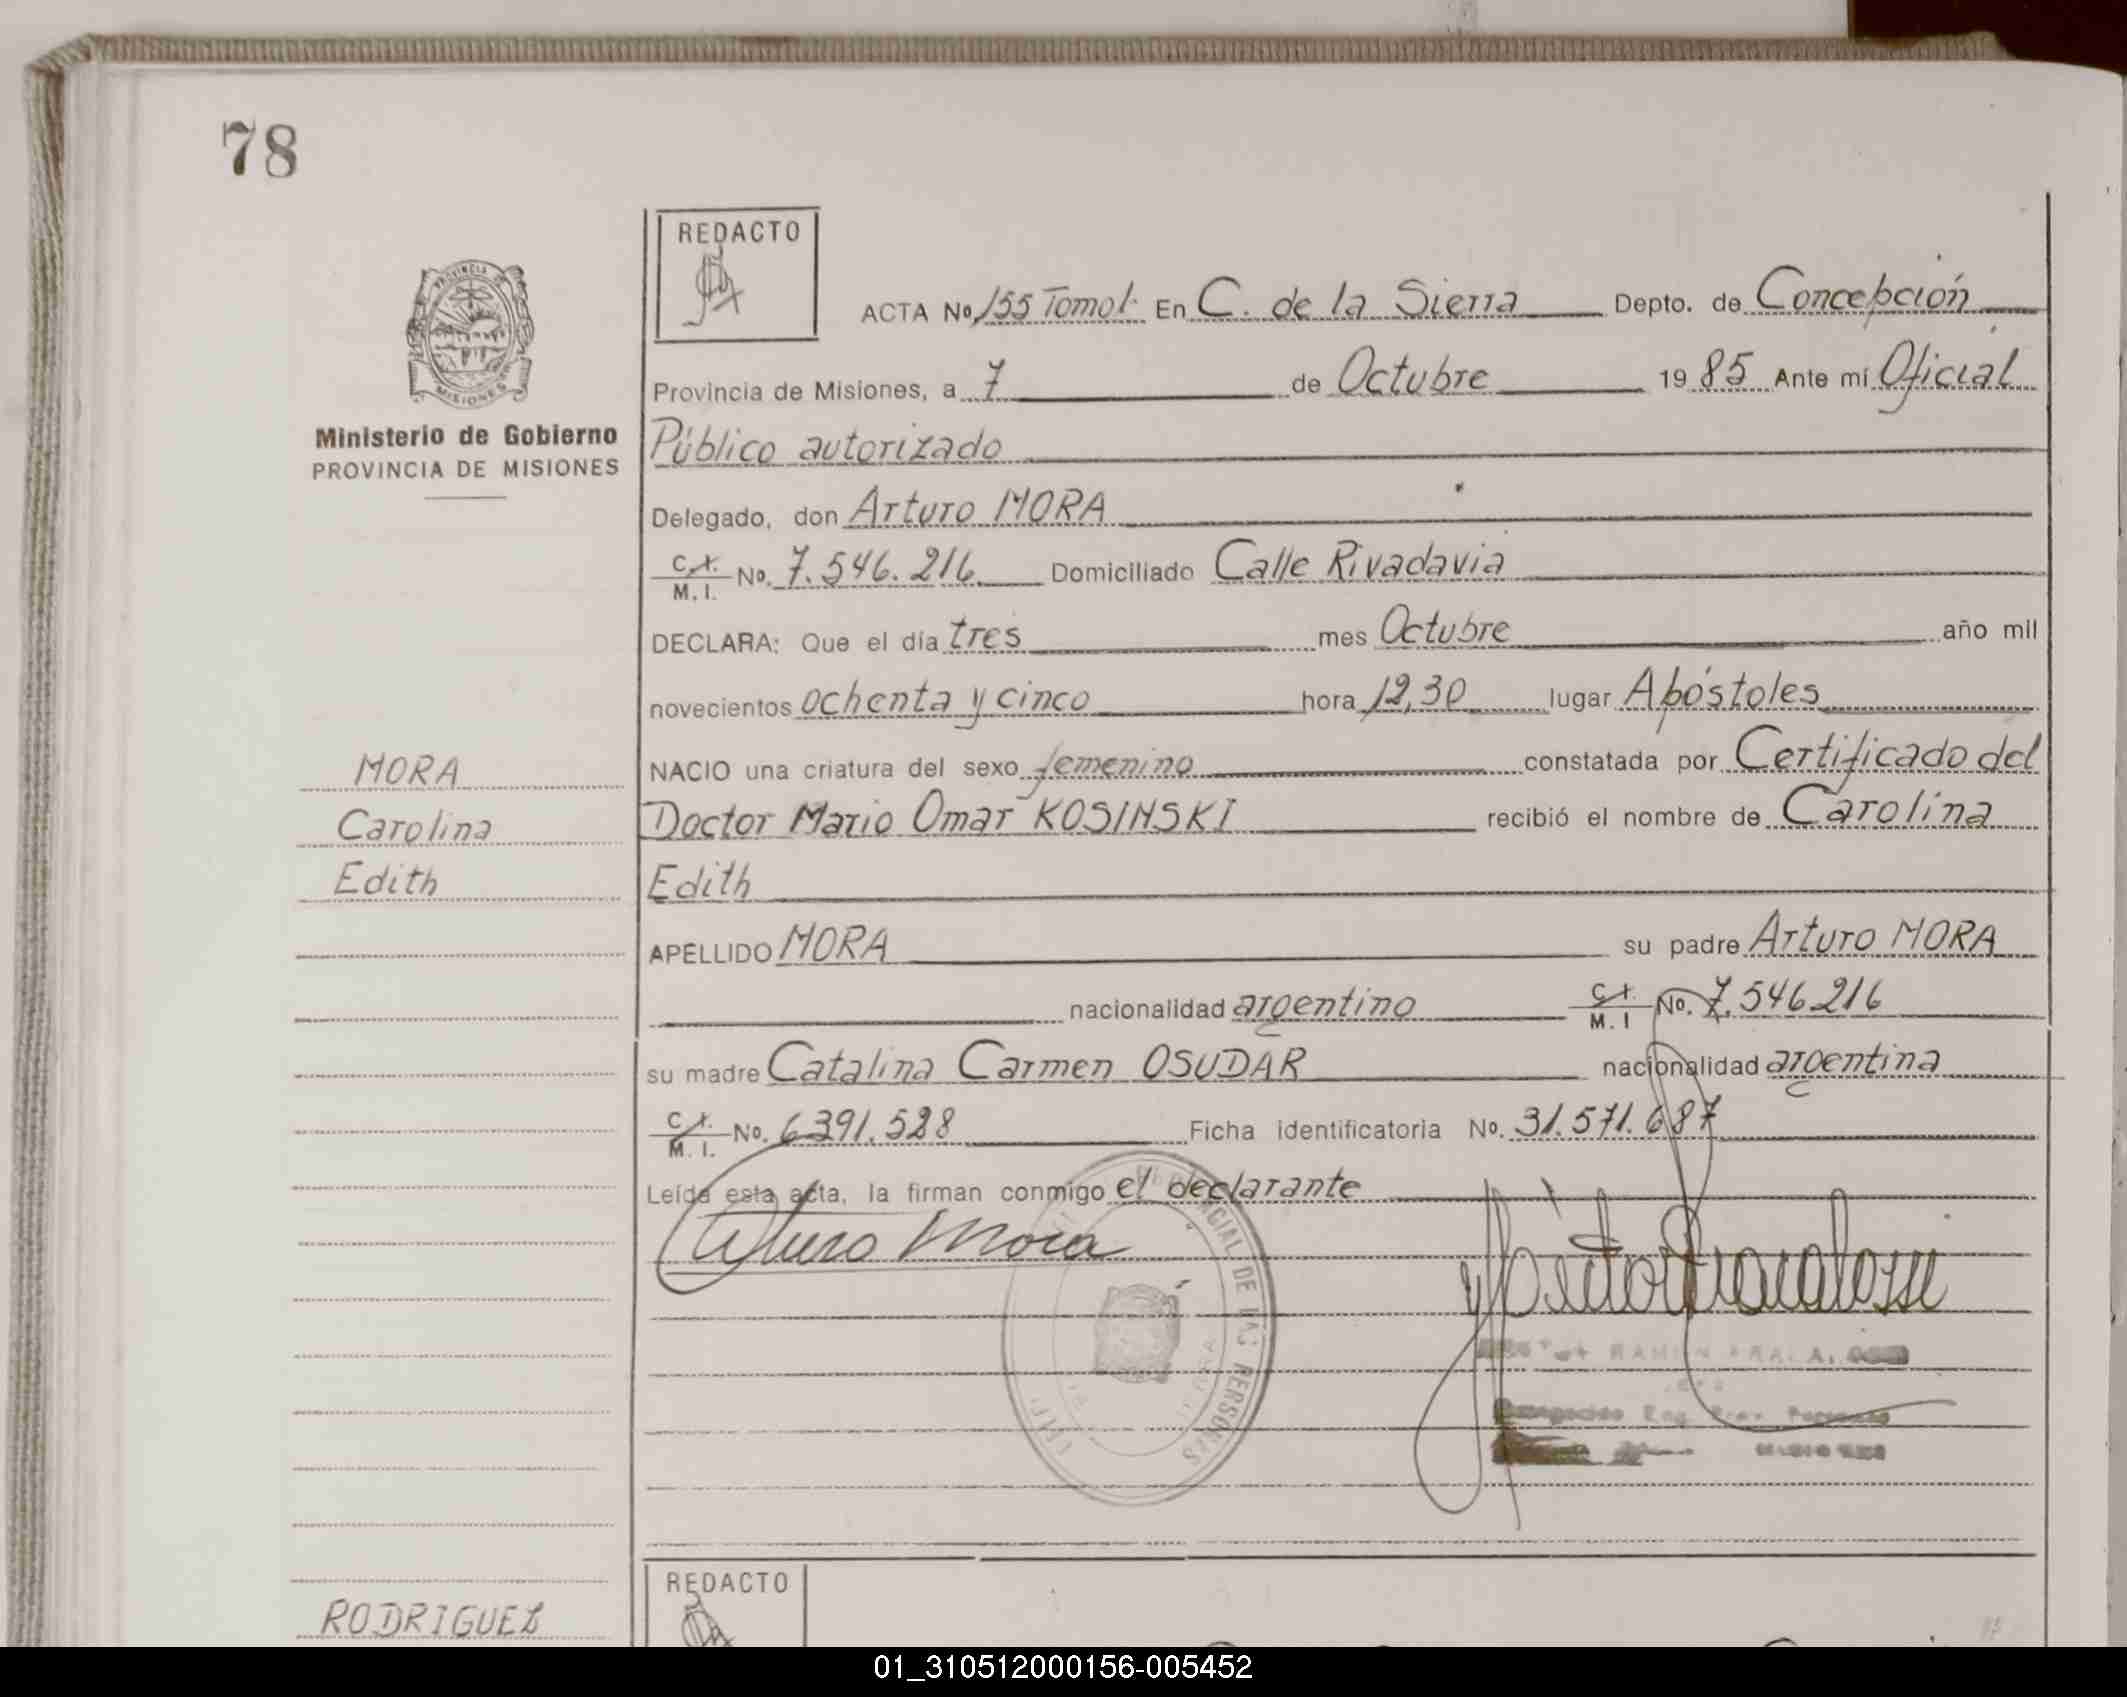 78
REDACTO
ACTA No. 155 Tomo I. En C. de la Sierra Depto. de Concepción
Provincia de Misiones, a 7 de Octubre 19 85 Ante mí Oficial
Ministerio de Gobierno
PROVINCIA DE MISIONES
Público autorizado
Delegado, don Arturo MORA
C.I. M.I. No. 7.546.216 Domiciliado Calle Rivadavia
DECLARA: Que el día tres mes Octubre año mil
novecientos ochenta y cinco hora 12,30 lugar Apóstoles
MORA
NACIO una criatura del sexo femenino constatada por Certificado del
Carolina
Doctor Mario Omar KOSINSKI recibió el nombre de Carolina
Edith
Edith
APELLIDO MORA su padre Arturo MORA
nacionalidad argentino C.I. M.I No. 7.546.216
su madre Catalina Carmen OSUDAR nacionalidad argentina
C.I. M.I. No. 6391.528 Ficha identificatoria No. 31.571.687
Leída esta acta, la firman conmigo el declarante
Arturo Mora
CIAL DE LAS PERSONAS
REDACTO
RODRIGUEZ
01_310512000156-005452